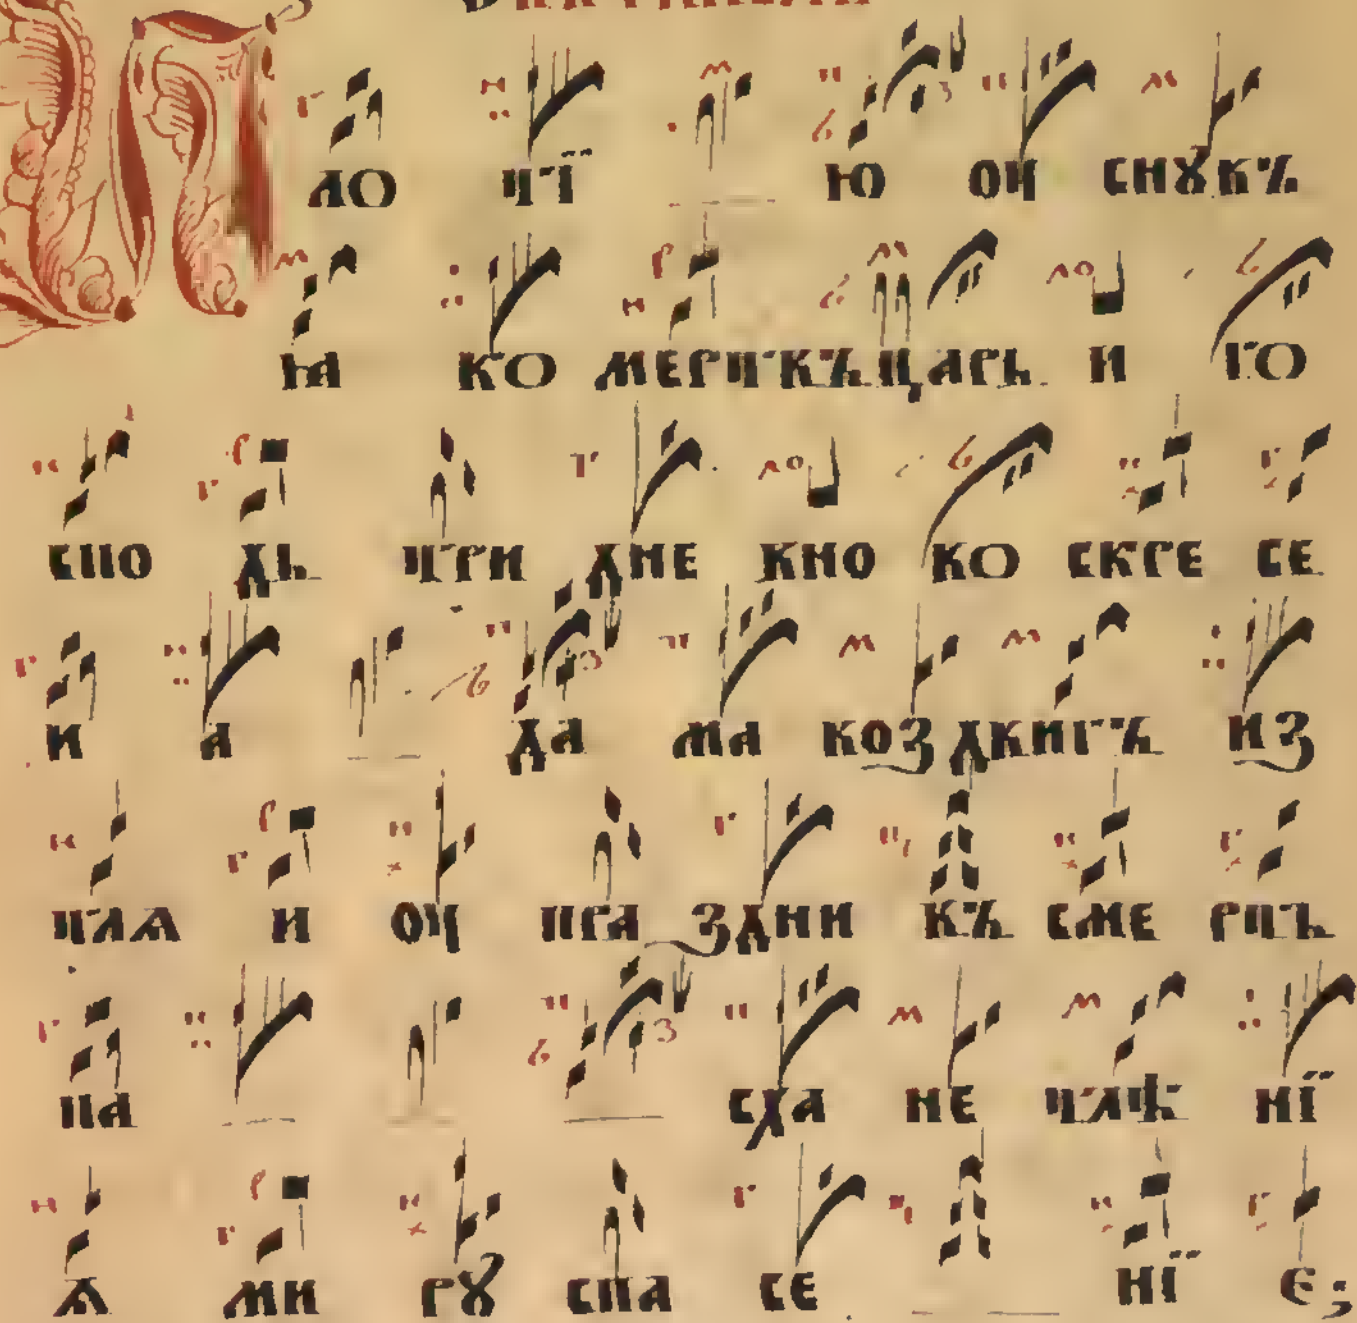 П ло тї ю оу снꙋвъ
ꙗ ко мертвъ царь и го
спо дь три дне вно во скре се
и а да ма воз двигъ из
тлѧ и оу пра здни въ сме рть
па сха не тлѣ нї
ѧ ми рꙋ спа се нї е;